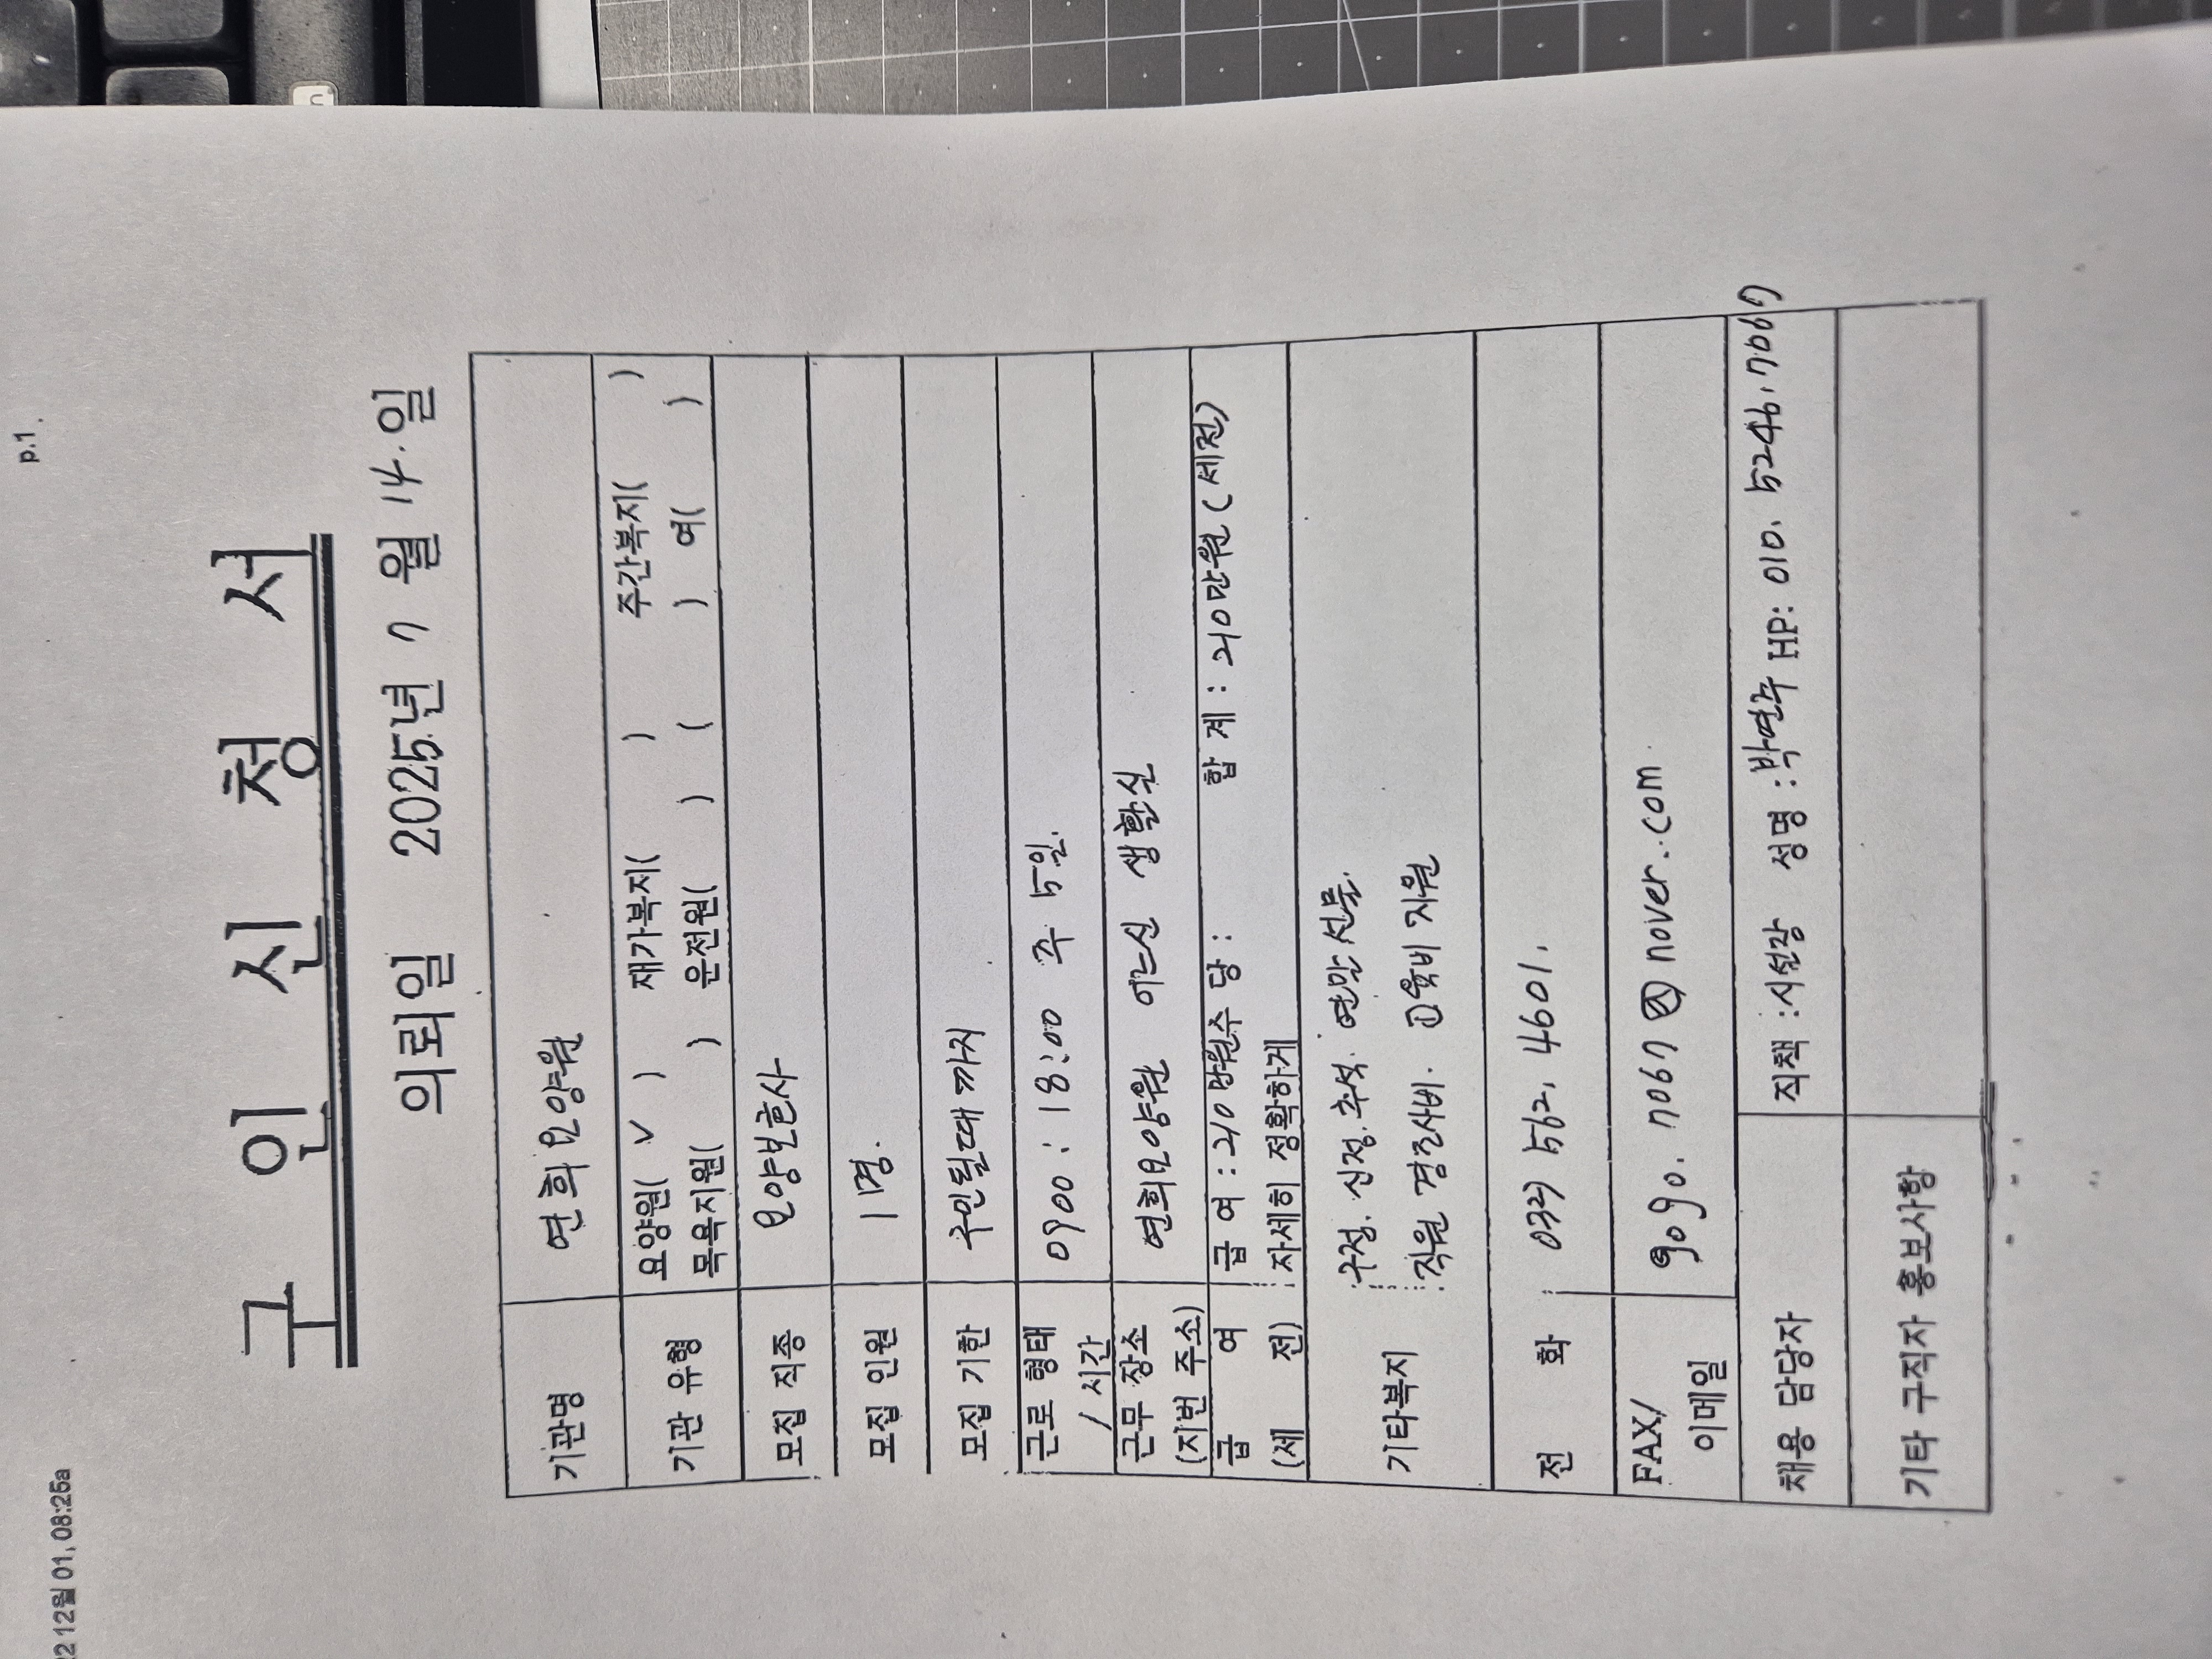 22 12월 01, 08:25a p.1
구 인 신 청 서
의뢰일 2025년 7 월 14.일
기관명 연희요양원
기관 유형 요양원( V ) 재가복지( ) 주간복지( )
목욕지원( ) 운전원( ) ( ) 여( )
모집 직종 요양보호사
모집 인원 1명.
모집 기한 구인될때 까지
근로 형태 / 시간 0900 : 18:00 주 5일.
근무 장소 (지번 주소) 연희요양원 어르신 생활실
급 여 급 여 : 210만원 수 당 : 합 계 : 210만원 (세전)
(세 전) 자세히 정확하게
기타복지 구정. 신정. 추석. 연말 선물.
직원 경조사비. 교육비 지원
전 화 032) 562. 4601.
FAX/ 이메일 9090. 7067 @ naver.com
채용 담당자 직책 : 시설장 성명 : 박연주 HP: 010. 5246. 7067
기타 구직자 홍보사항